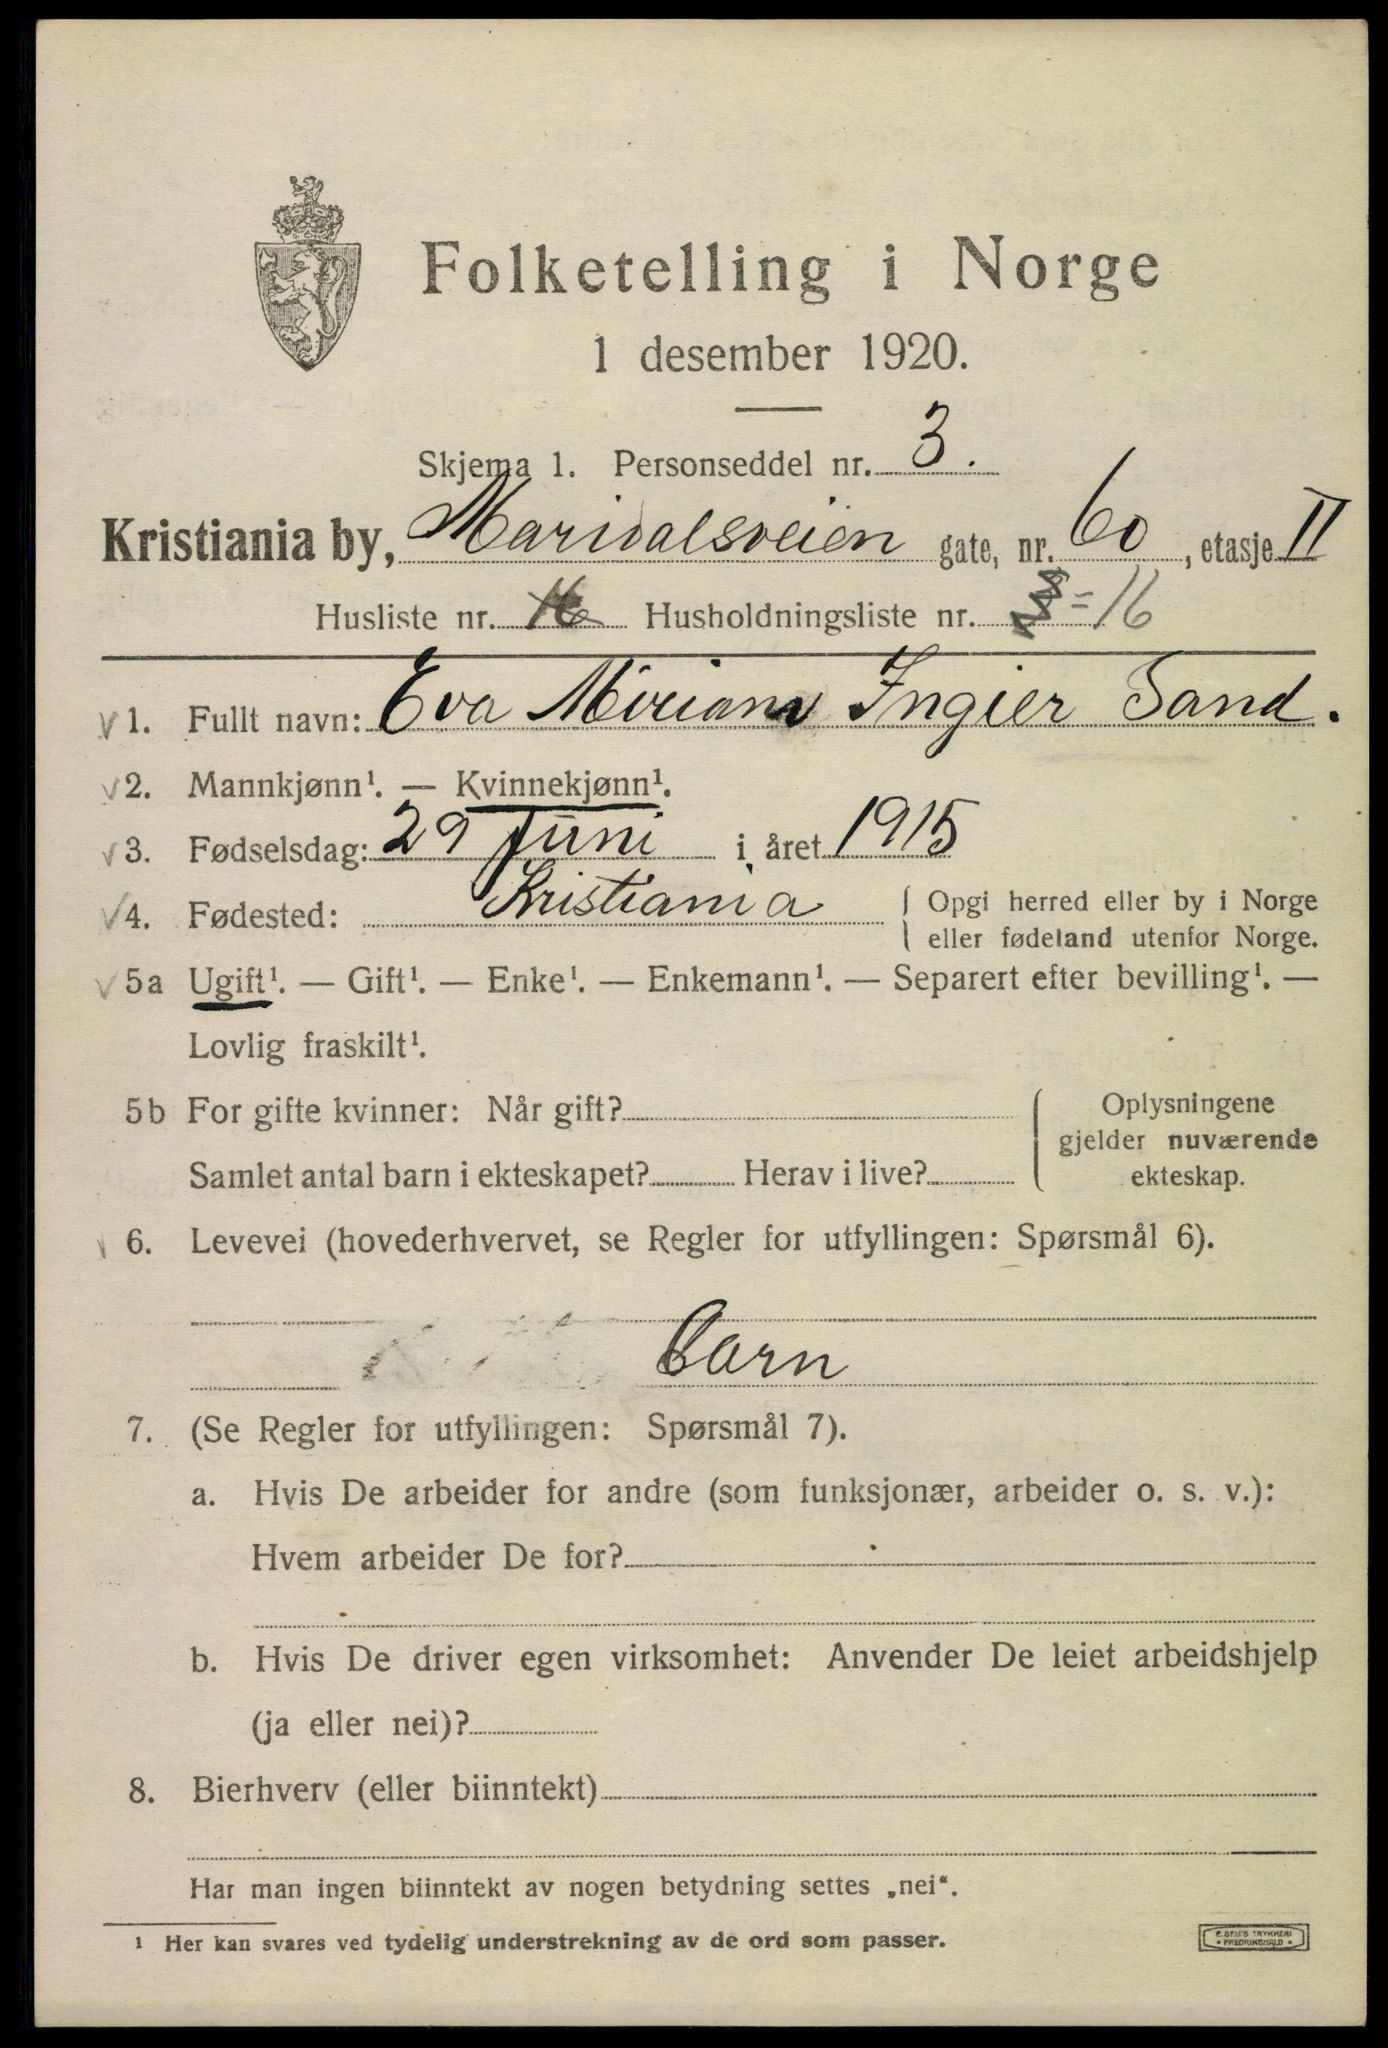 Folketelling i Norge
1 desember 1920.
Skjema 1. Personseddel nr. 3.
Kristiania by, Maridalsveien gate, nr. 60, etasje II
Husliste nr. Husholdningsliste nr. = 16
√ 1. Fullt navn: Eva Miriam Ingier Sand.
√ 2. Mannkjønn¹. — Kvinnekjønn¹.
√ 3. Fødselsdag: 29 Juni i året 1915
√ 4. Fødested: Kristiania { Opgi herred eller by i Norge
eller fødeland utenfor Norge.
√ 5a Ugift¹. — Gift¹. — Enke¹. — Enkemann¹. — Separert efter bevilling¹. —
Lovlig fraskilt¹.
5b For gifte kvinner: Når gift? { Oplysningene
gjelder nuværende
Samlet antal barn i ekteskapet? Herav i live? ekteskap.
√ 6. Levevei (hovederhvervet, se Regler for utfyllingen: Spørsmål 6).
Barn
7. (Se Regler for utfyllingen: Spørsmål 7).
a. Hvis De arbeider for andre (som funksjonær, arbeider o. s. v.):
Hvem arbeider De for?
b. Hvis De driver egen virksomhet: Anvender De leiet arbeidshjelp
(ja eller nei)?
8. Bierhverv (eller biinntekt)
Har man ingen biinntekt av nogen betydning settes „nei“.
¹ Her kan svares ved tydelig understrekning av de ord som passer.
E. SEM'S TRYKKERI
• FREDRIKSHALD •